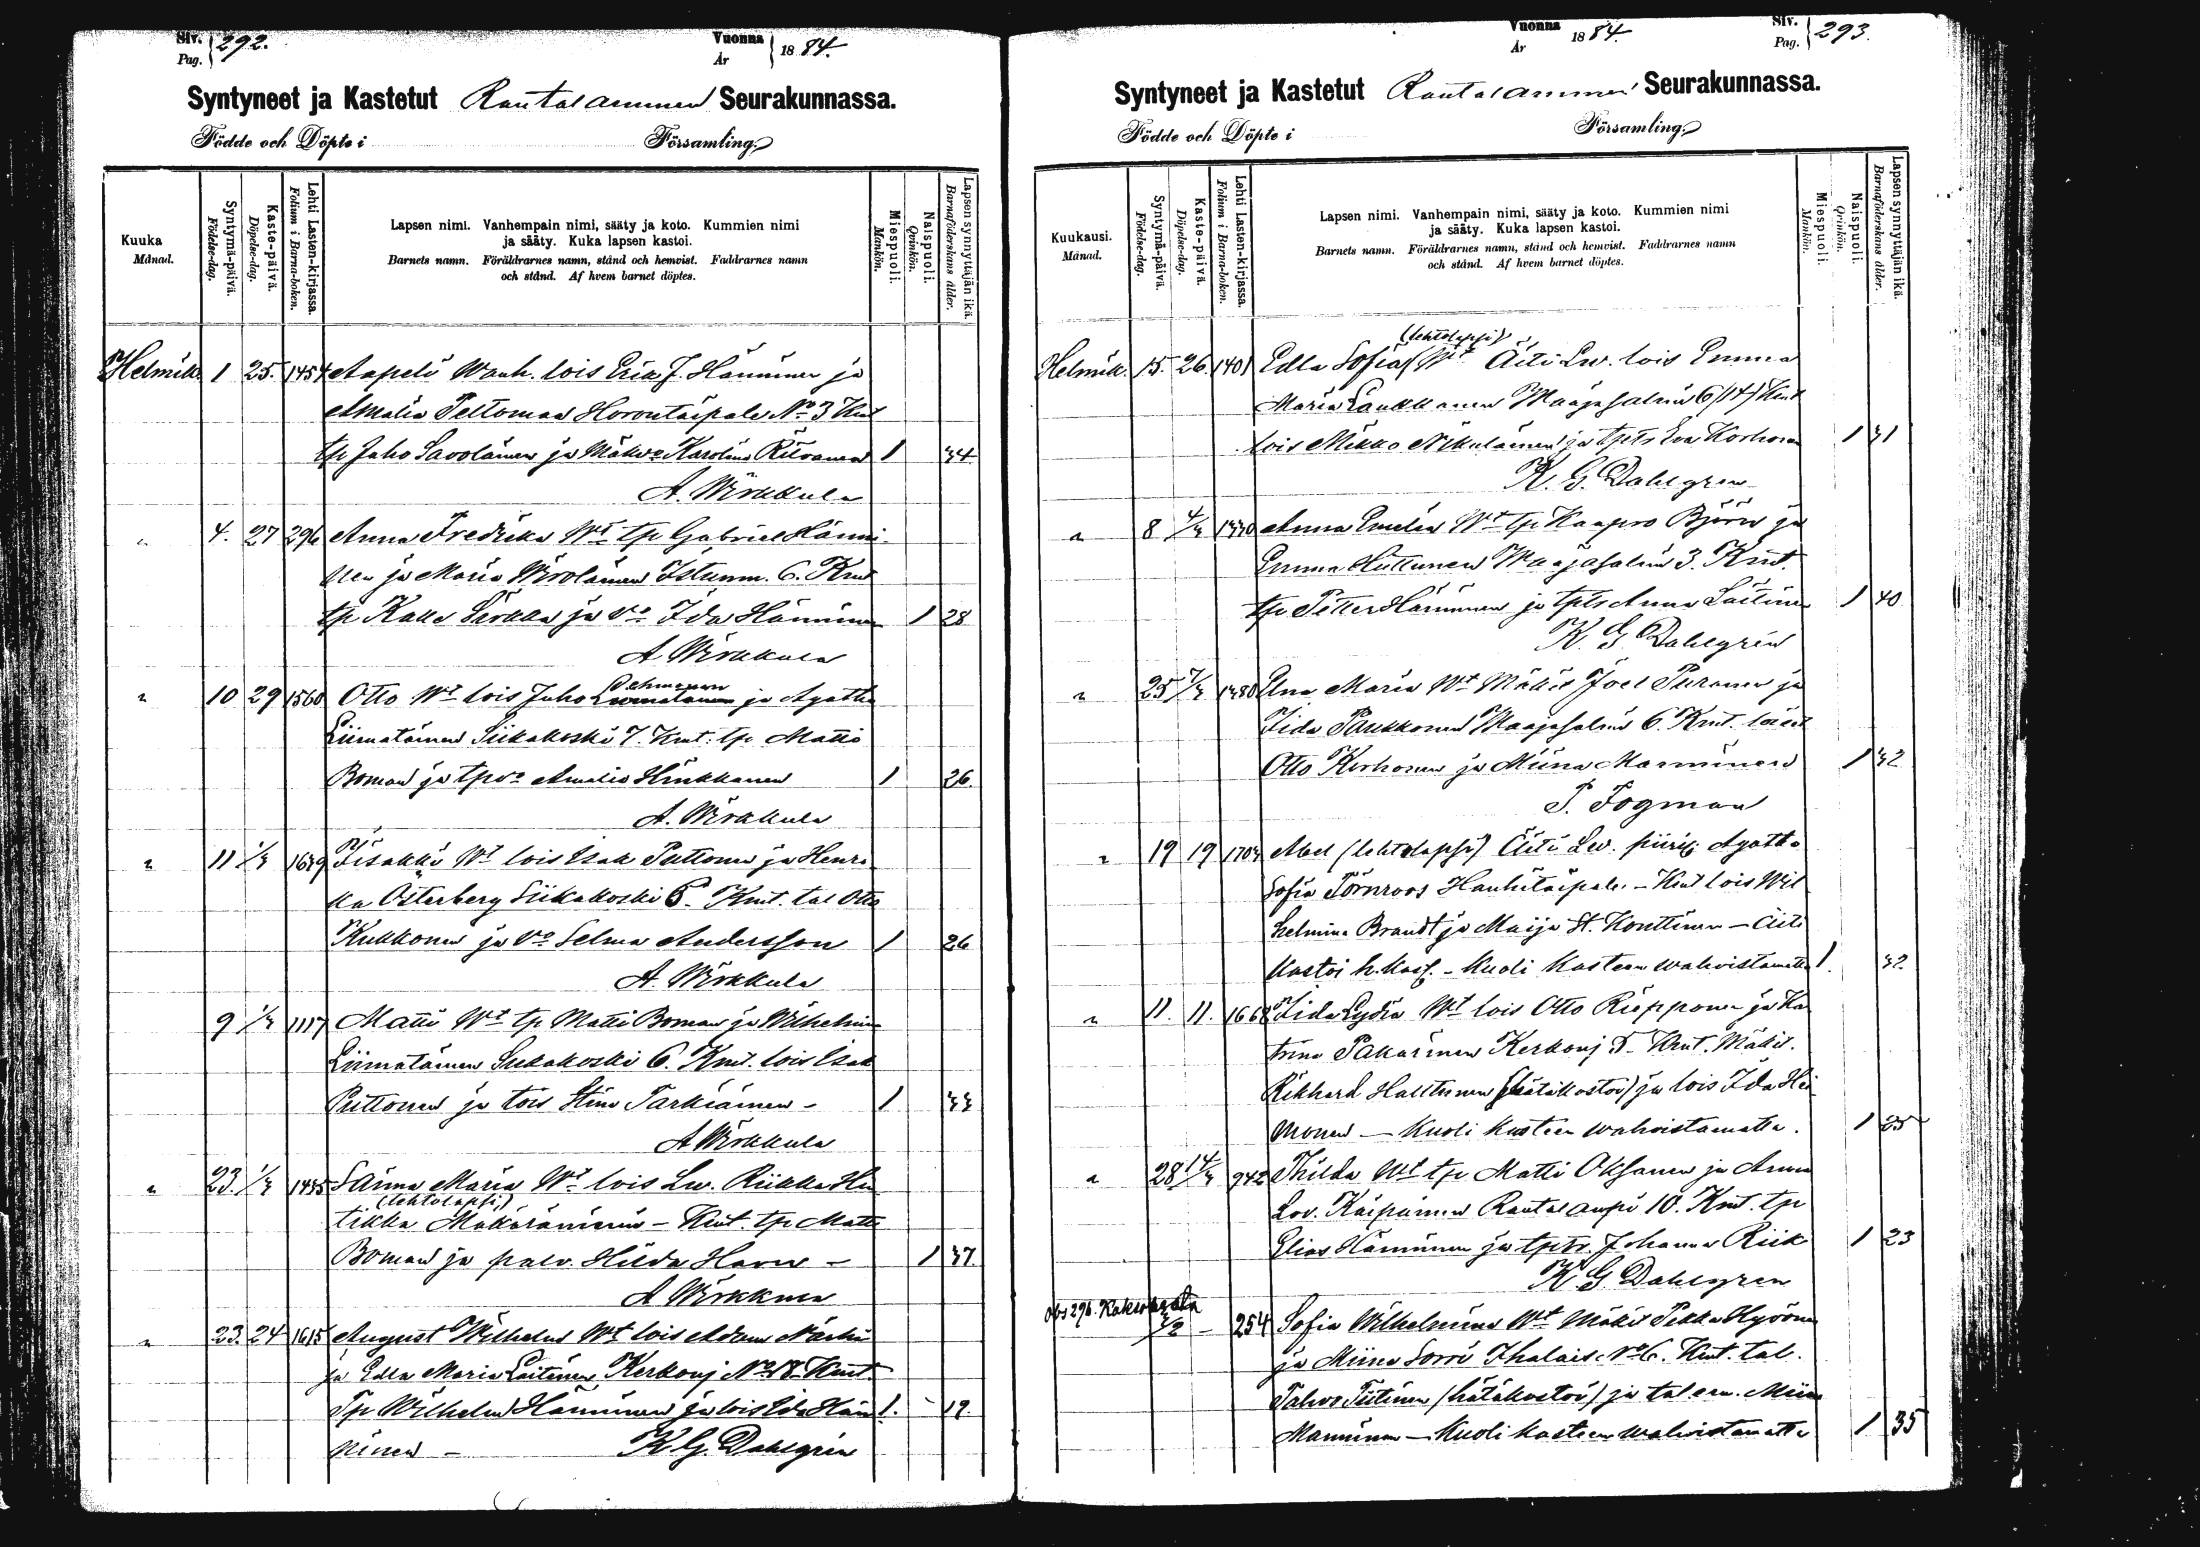 Siv. Pag. 292.
Vuonna År 1884.
Syntyneet ja Kastetut Rautalammen Seurakunnassa.
Födde och Döpte i Församling.
Kuuka Månad.
Syntymä-päivä. Födelse-dag.
Kaste-päivä. Döpelse-dag.
Lehti Lasten-kirjassa. Folium i Barna-boken.
Lapsen nimi. Vanhempain nimi, sääty ja koto. Kummien nimi
ja sääty. Kuka lapsen kastoi.
Barnets namn. Föräldrarnes namn, stånd och hemvist. Faddrarnes namn
och stånd. Af hvem barnet döptes.
Miespuoli. Mankön.
Naispuoli. Qvinkön.
Lapsen synnyttäjän ikä. Barnaföderskans ålder.
Helmik. 1 25. 1454 Aapeli Wanh. lois Erik J. Hänninen ja
Amalia Peltoman Horontaipale No 3 Kmt
tp Juho Savolainen ja Mäkvo Karolina Riivanen 1 34
A. Wirkkula
4. 27 296 Anna Fredrika Wt tp Gabriel Hänni-
nen ja Maria Wirolainen Istunm. 6. Kmt
tp Kalle Sirkka ja vo Ida Hänninen 1 28
A Wirkkula
10 29 1560 Otto Wt lois Juho Lehmonen ja Agatha
Liimatainen Siikakoski 7. Kmt. tp Matti
Boman ja tpvo Amalia Hinkkanen 1 26.
A. Wirkkula
11 1/3 1639 Iisakki Wt lois Isak Puttonen ja Henri-
ka Osterberg Siikakoski 6. Kmt. tal Otto
Kukkonen ja vo Selma Andersson 1 26
A. Wirkkula
9 1/3 1117 Matti Wt tp Matti Boman ja Wilhelmina
Liimatainen Siikakoski 6. Kmt. lois Isak
Puttonen ja lois Stina Tarkiainen - 1 33
A Wirkkula
23. 1/3 1435 Sanna Maria Wt lois Lw. Riikka Hu
(lehtolapsi)
tikka Makaraniemi - Kmt. tp Matti
Boman ja palv. Hilda Haru - 1 37.
A Wirkkula
23. 24 1615 August Wilhelm Wt lois Adam Närhi
ja Edla Maria Laitinen Kerkonj No 18 Kmt.
Tp Wilhelm Hänninen ja lois Eda Hän 1. 19.
ninen - K. G. Dahlgrén
Siv. Pag. 293.
Vuonna År 1884.
Syntyneet ja Kastetut Rautalammen Seurakunnassa.
Födde och Döpte i Församling.
Kuukausi. Månad.
Syntymä-päivä. Födelse-dag.
Kaste-päivä. Döpelse-dag.
Lehti Lasten-kirjassa. Folium i Barna-boken.
Lapsen nimi. Vanhempain nimi, sääty ja koto. Kummien nimi
ja sääty. Kuka lapsen kastoi.
Barnets namn. Föräldrarnes namn, stånd och hemvist. Faddrarnes namn
och stånd. Af hvem barnet döptes.
Miespuoli. Mankön.
Naispuoli. Qvinkön.
Lapsen synnyttäjän ikä. Barnaföderskans ålder.
(lehtolapsi)
Helmik. 15. 26. 1401 Edla Sofia Wt Äiti Lw. lois Emma
Maria Laukkanen Maajasalmi 6 (14) Kmt
lois Mikko Nikulainen ja tptr Eva Korhonen 1 31
K. G. Dahlgren
8 4/3 1330 Anna Emilia Wt tp Kaapro Björn ja
Emma Huttunen Maajasalmi 3. Kmt.
tp Petter Hänninen ja tptr Anna Laitinen 1 40
K. G Dahlgrén
25 7/3 1380 Una Maria Wt Mäkit Joel Puranen ja
Iida Paukkonen Maajasalmi 6. Kmt. loiset
Otto Korhonen ja Miina Manninen 1 32
P. Fogman
19 19 1703 Abel (lehtolapsi) Äiti Lw. piirij. Agatha
Sofia Törnroos Hanhitaipale. - Kmt lois Wil
helmina Brandt ja Maija St. Konttinen - Äiti
kastoi h. kast. - Kuoli kasteen wahvistamatta 1. 32.
11. 11. 1668 Iida Lydia Wt lois Otto Riepponen ja Ka
trina Pakarinen Kerkonj 5 - Kmt. Mäkit.
Rikhard Halttunen (hätäkastoi) ja lois Ida Hei
monen - Kuoli kasteen wahvistamatta. 1 25
28 14/3 942 Thilda Wt tp Matti Oksanen ja Anna
Lov. Kaipainen Rautalampi 10. Kmt. tp
Elias Hänninen ja tptr. Johanna Riik 1 23
K G Dahlgren
Obs 296. Kaksoisia
3/2 - 254 Sofia Wilhelmina Wt Mäkit Pekka Hyvönen
ja Miina Sorri Ihalais. No 6. Kmt. tal.
Pahvo Tiitinen (hätäkastoi) ja tal.em. Miina
Manninen - Kuoli kasteen wahvistamatta 1 35